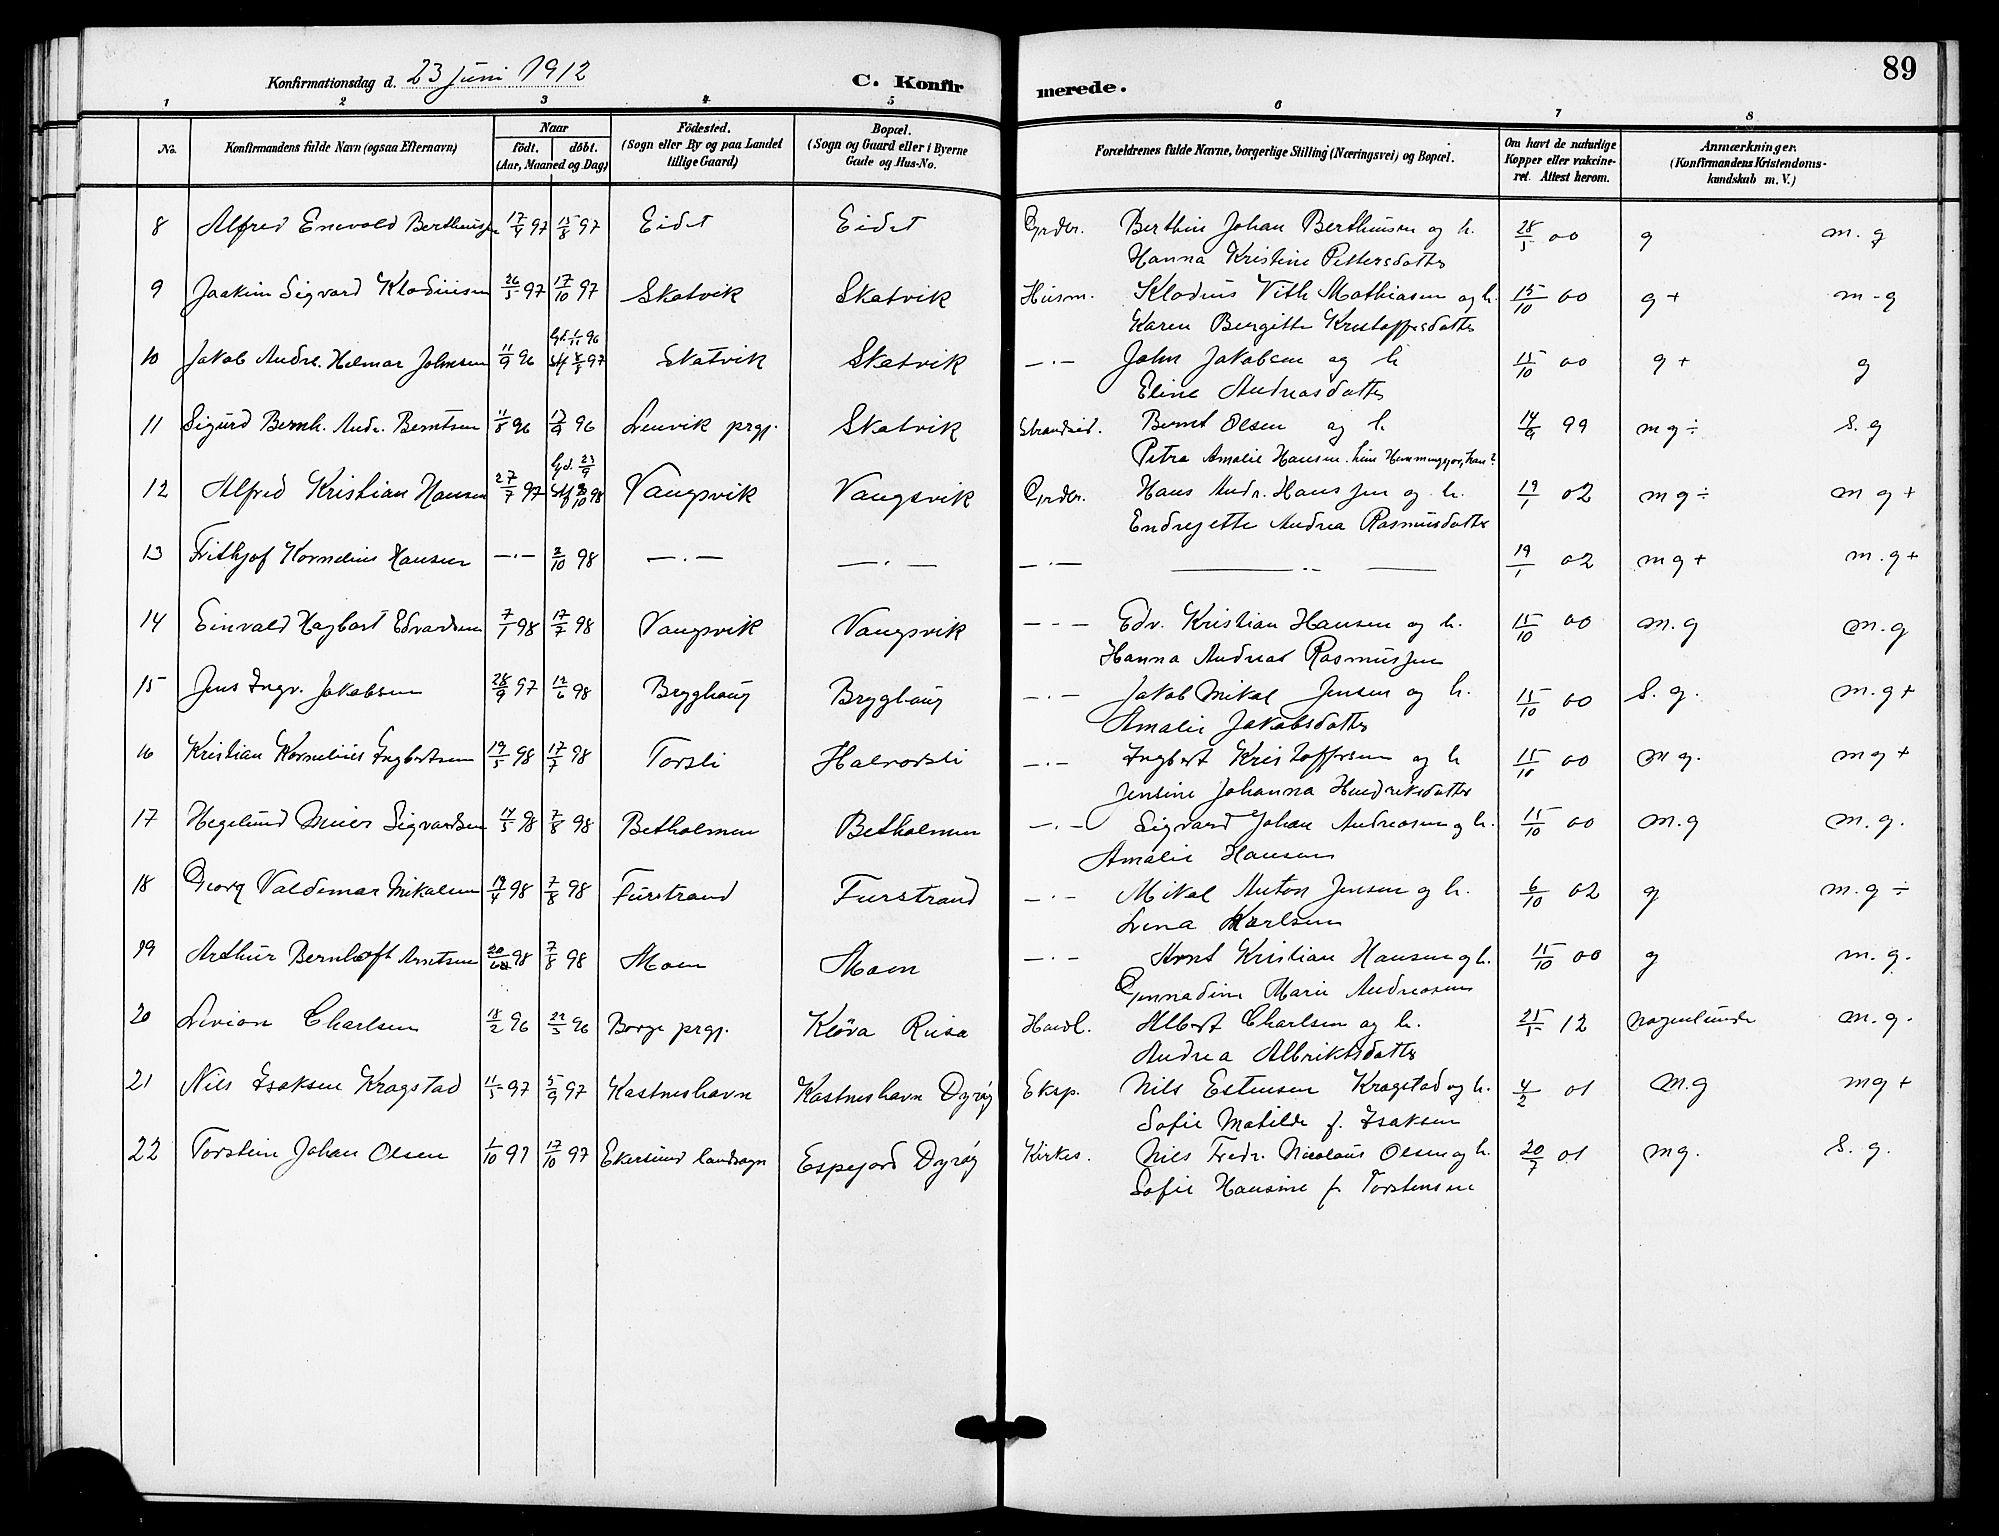 89
Konfirmationsdag d. 23 juni 1912
C. Konfirmerede.
1 2 3 4 5 6 7 8
No.
Konfirmandens fulde Navn (ogsaa Efternavn)
Naar
födt. döbt.
(Aar, Maaned og Dag)
Födested.
(Sogn eller By og paa Landet
tillige Gaard)
Bopæl.
(Sogn og Gaard eller i Byerne
Gade og Hus-No.
Forældrenes fulde Navne, borgerlige Stilling (Næringsvei) og Bopæl.
Om havt de naturlige
Kopper eller vakcine-
ret. Attest herom.
Anmærkninger.
(Konfirmandens Kristendoms-
kundskab m. V.)
8 Alfred Enevold Berthinsen 17/4 97 15/8 97 Eidet Eidet Grdbr. Berthin Johan Berthinsen og h. 28/5 00 g m. g
Hanna Kristine Pettersdatter
9 Joakim Sigvard Klodiusen 26/5 97 17/10 97 Skatvik Skatvik Husm. Klodius Vith Mathiasen og h. 15/10 00 g + m - g
Karen Bergitte Kristoffersdatter
10 Jakob Andr. Helmar Johnsen 11/9 96 hd. 1/11 96 Skatvik Skatvik — . — John Jakobsen og h 15/10 00 g + g
Eline Andreasdatter
11 Sigurd Bernh. Andr. Berntsen 11/8 96 17/9 96 Lenvik prgj. Skatvik Strandsid. Bernt Olsen og h. 14/9 99 m g ÷ S. g
Petra Amalie Hansen.
12 Alfred Kristian Hansen 27/7 97 hd. 23/9 Vangsvik Vangsvik Grdbr. Hans Andr. Hanssen og h. 19/1 02 m g ÷ m g +
Endregette Andrea Rasmusdatter
13 Frithjof Kornelius Hansen — . — 2/10 98 — . — — . — — . — — .. — 19/1 02 m g + m. g +
14 Einvald Hagbart Edvardsen 7/1 98 17/7 98 Vangsvik Vangsvik — - — Edv. Kristian Hansen og h. 15/10 00 m. g m. g
Hanna Andrea Rasmussen
15 Jens Ingv. Jakobsen 28/9 97 12/6 98 Brygghaug Brygghaug — . — Jakob Mikal Jensen og h. 15/10 00 S. g. m. g +
Amalie Jakobsdatter
16 Kristian Kornelius Ingbertsen 19/5 98 17/7 98 Torsli Halvorsli — . — Ingbert Kristoffersen og h 15/10 00 m g. m g +
Jensine Johanna Hendriksdatter
17 Hegelund Meier Sigvardsen 4/5 98 7/8 98 Betholmen Betholmen — . — Sigvard Johan Andreasen og h. 15/10 00 m. g m. g.
Amalie Hansen
18 Georg Valdemar Mikalsen 19/4 98 7/8 98 Furstrand Furstrand — . — Mikal Anton Jensen og h. 6/10 02 g m. g ÷
Lena Karlsen
19 Arthur Bernhoft Arntsen 20/6 98 7/8 98 Moen Moen — . — Arnt Kristian Hansen og h. 15/10 00 g m. g.
Gunnadine Marie Andreasen
20 Livian Charlsen 18/2 96 22/3 96 Borge prgj. Klöva Riisa Handl. Albert Charlsen og h. 25/5 12 nogenlunde m. g.
Andrea Albriktsdatter
21 Nils Isaksen Kragstad 11/5 97 5/9 97 Kastneshavn Kastneshavn Dyröy Eksp. Nils Estensen Kragstad og h. 4/2 01 m. g m g +
Sofie Matilde f. Isaksen
22 Torstein Johan Olsen 1/10 97 17/10 97 Ekersund landsogn Espejord Dyröy Kirkes. Nils Fredr. Nicolaus Olsen og h. 20/7 01 m g. S. g.
Sofie Hansine f. Torstensen